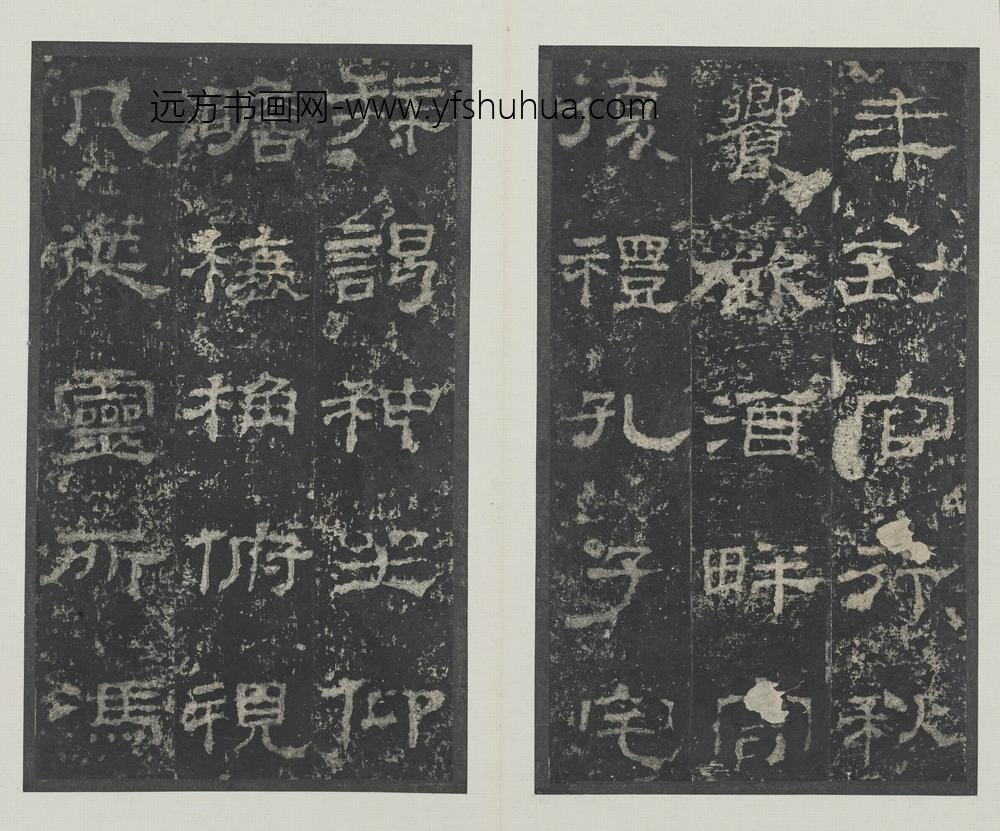 远方书画网-www.yfshuhua.com
年到官行秋
饗飲酒畔宮
復禮孔子宅
拜謁神坐仰
瞻榱桷俯視
几筵靈所馮